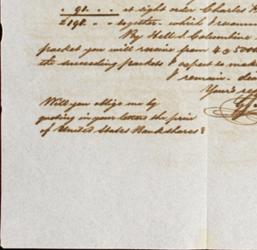 " 91. " " at sight order Charles
£198. " " together which I
By Hell. & Columbine
packet you will receive from 4 @ 5000
the succeeding packets I expect to mak
I remain dea
Your's
Will you oblige me by
quoting in your letters the price
of United States Bank shares?